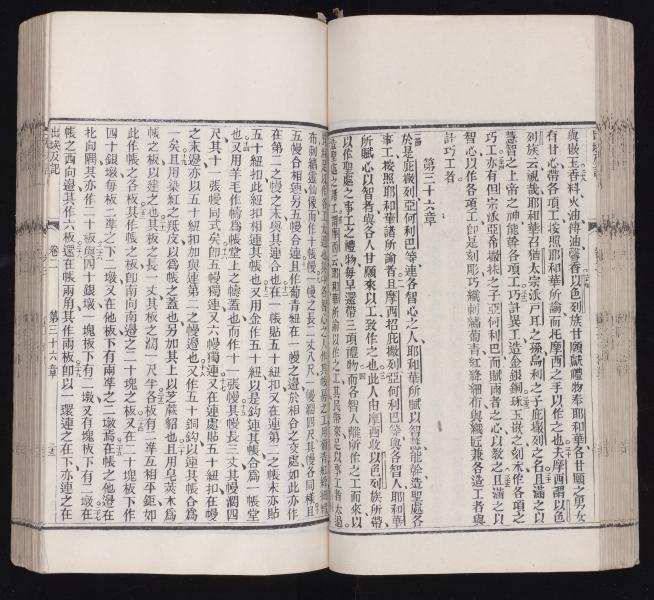 與嵌玉香料火油傅油馨香以色列族甘願獻禮物奉耶和華各甘願之男女
有甘心帶各項工按照耶和華所諭而托摩西之手以作之也夫摩西謂以色
列族云視哉耶和華召猶太宗派戶耳之孫烏利之子庇撒列之名且滿之以
慧智之上帝之神能幹各項工巧計異工造金銀銅琢玉嵌之刻木作各項之
巧工亦有但宗派亞希撒抹之子亞何利巴而賦兩者之心以教之且滿之以
智心以作各項工卽是刻彫巧織刺繡葡青紅綠細布與織匠兼各造工者與
計巧工者
第三十六章
於是庇撒列亞何利巴等連各智心之人耶和華所賦以智慧能幹造聖處各
事工按照耶和華諸所諭者且摩西招庇撒列亞何利巴等與各智人耶和華
所賦心以智者與各人甘願來以工致作之也此人由摩西收以色列族所帶
以作聖處之事工之禮物每早還帶三項禮物而各智人離所作之工而來以
布刺繡嚧𠺕仙像而作十長幔
五幔合相連另五幔合連且作葡青紐在一幔之邊於相合之交處如此亦作
在第二之幔之末與其連合也在一帳貼五十紐扣又在連第二之帳末亦貼
五十紐扣此紐扣相連其帳也又用金作五十紐以是鈎連其帳合為一帳堂
也又用羊毛作幬為帳堂上之帳蓋也而作十一張幔其幔長三丈其幔濶四
尺其十一張幔同式矣卽五幔獨連又六幔獨連又在連處貼五十紐扣在幔
之末邊亦以五十紐扣加與連第二之幔邊也又作五十銅鈎以連其帳合為
一矣且用染紅之羝皮以為帳之蓋也另加其上以芝蔴貂也且用皂莢木為
帳之板以建之也其板之長一丈其板之濶一尺半各板有二準互相平鉅如
此作帳之各板其作帳之板卽南向南邊之二十塊之板又在二十塊板下作
四十銀墩每板二準之下二墩又在他板下有兩準之二墩焉在帳之他邊在
北向隅其亦作二十板與四十銀墩一塊板下有二墩又有塊板下有二墩在
帳之西向邊其作六板還在帳兩角其作兩板卽以一環連之在下亦連之在
出埃及記
卷二
第三十六章